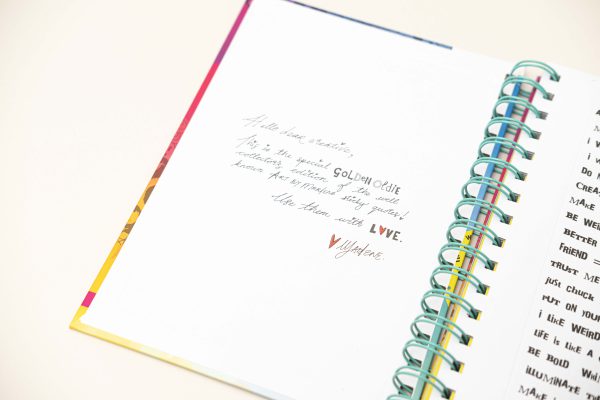 Hello dear creative,
This is the special GOLDEN OLDIE
collectors edition of the well
known Art By Marlene sticky quotes!
Use them with LOVE.
Marlene
i w
i w
DO N
CREA
MAKE
BE WEI
BETTER
FRIEND =
TRUST ME
just chuck
PUT ON YOUR
i LiKE WEIRD
LiFE iS LiKE A
BE BOLD
iLLUMiNATE
MAKE